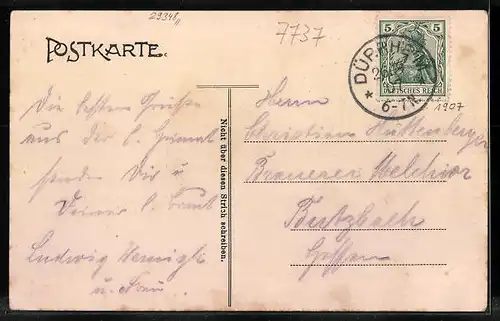 29348
7737
POSTKARTE.
5 5
DEUTSCHES REICH
DÜRKHEIM
* 6-7N
1907
Die besten Grüße
aus der l. Heimat
senden Dir u
Deiner l. Frau
Ludwig
u. Frau
Nicht über diesen Strich schreiben.
Herrn
Christian Hüttenberger
Brauerei Melchior
Butzbach
Hessen